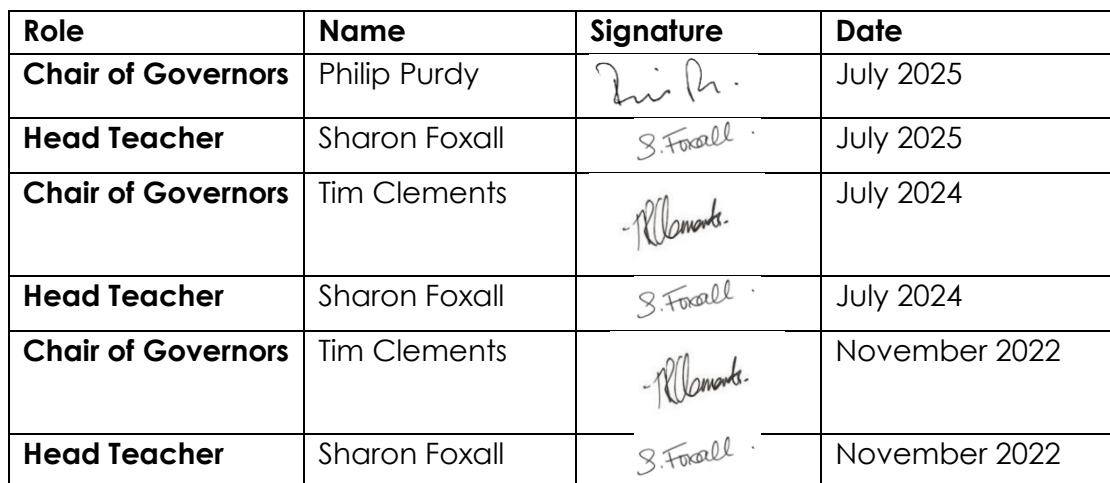 Role Name Signature Date
Chair of Governors Philip Purdy July 2025
Head Teacher Sharon Foxall S. Foxall. July 2025
Chair of Governors Tim Clements TRClements. July 2024
Head Teacher Sharon Foxall S. Foxall. July 2024
Chair of Governors Tim Clements TRClements. November 2022
Head Teacher Sharon Foxall S. Foxall. November 2022